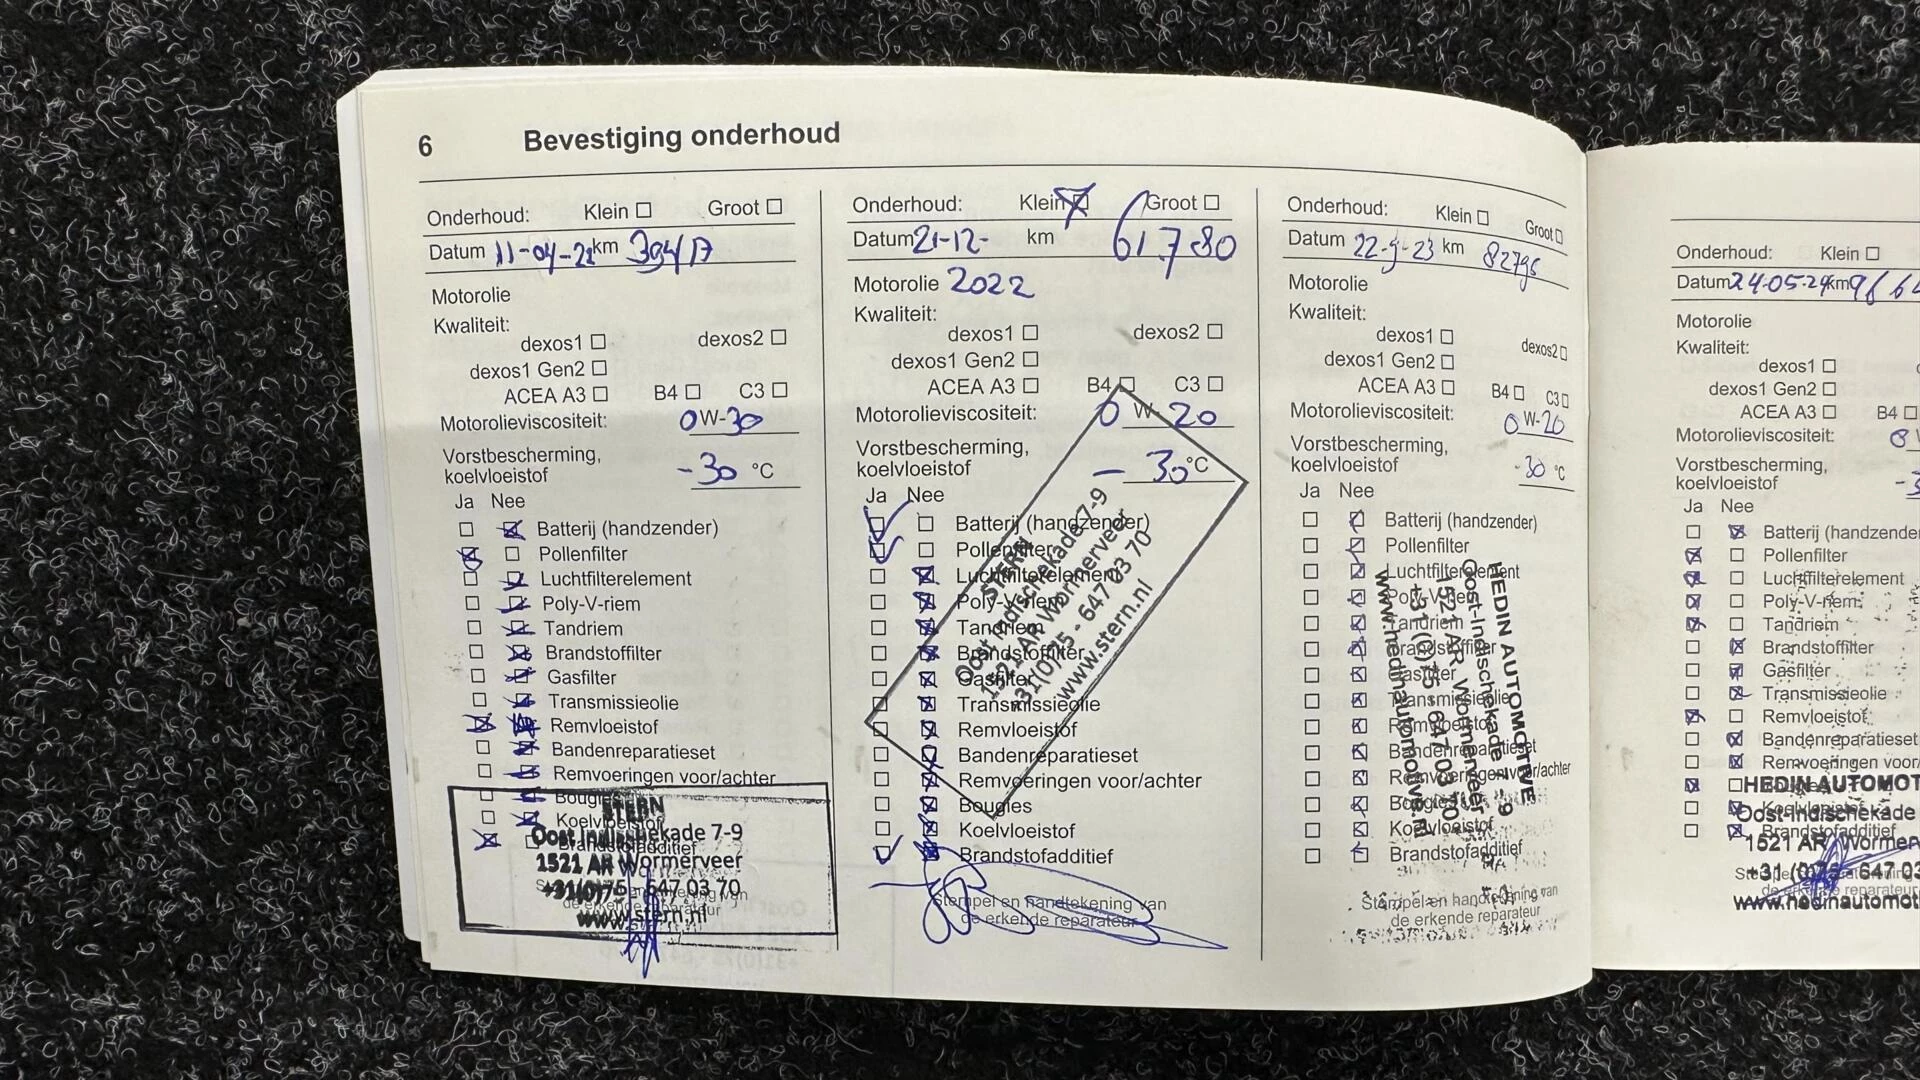 6 Bevestiging onderhoud
Onderhoud: Klein Groot
Datum 11-04-22 km 39417
Motorolie
Kwaliteit:
dexos1 dexos2
dexos1 Gen2
ACEA A3 B4 C3
Motorolieviscositeit: 0 W-30
Vorstbescherming,
koelvloeistof -30 °C
Ja Nee
Batterij (handzender)
Pollenfilter
Luchtfilterelement
Poly-V-riem
Tandriem
Brandstoffilter
Gasfilter
Transmissieolie
Remvloeistof
Bandenreparatieset
Remvoeringen voor/achter
Bougies
Koelvloeistof
Brandstofadditief
STERN
Oost Indischekade 7-9
1521 AR Wormerveer
+31(0)75 - 647 03 70
www.stern.nl
Onderhoud: Klein Groot
Datum 21-12- km 61.780
Motorolie 2022
Kwaliteit:
dexos1 dexos2
dexos1 Gen2
ACEA A3 B4 C3
Motorolieviscositeit: 0 W-20
Vorstbescherming,
koelvloeistof - 30 °C
Ja Nee
Batterij (handzender)
Pollenfilter
Luchtfilterelement
Poly-V-riem
Tandriem
Brandstoffilter
Gasfilter
Transmissieolie
Remvloeistof
Bandenreparatieset
Remvoeringen voor/achter
Bougies
Koelvloeistof
Brandstofadditief
Stempel en handtekening van
de erkende reparateur
STERN
Oost Indischekade 7-9
1521 AR Wormerveer
+31(0)75 - 647 03 70
www.stern.nl
Onderhoud: Klein Groot
Datum 22-9-23 km 82795
Motorolie
Kwaliteit:
dexos1 dexos2
dexos1 Gen2
ACEA A3 B4 C3
Motorolieviscositeit: 0 W-20
Vorstbescherming,
koelvloeistof -30 °C
Ja Nee
Batterij (handzender)
Pollenfilter
Luchtfilterelement
Poly-V-riem
Tandriem
Brandstoffilter
Gasfilter
Transmissieolie
Remvloeistof
Bandenreparatieset
Remvoeringen voor/achter
Bougies
Koelvloeistof
Brandstofadditief
Stempel en handtekening van
de erkende reparateur
HEDIN AUTOMOTIVE
Oost-Indischekade 7-9
1521 AR Wormerveer
+31(0)75 - 647 03 70
www.hedinautomotive.nl
Onderhoud: Klein
Datum 24-05-24 km
Motorolie
Kwaliteit:
dexos1
dexos1 Gen2
ACEA A3 B4
Motorolieviscositeit: 0
Vorstbescherming,
koelvloeistof
Ja Nee
Batterij (handzender
Pollenfilter
Luchtfilterelement
Poly-V-riem
Tandriem
Brandstoffilter
Gasfilter
Transmissieolie
Remvloeistof
Bandenreparatieset
Remvoeringen voor/
Koelvloeistof
Brandstofadditief
HEDIN AUTOMOT
Oost-Indischekade
1521 AR Wormer
+31 (0)75 - 647 03
de erkende reparateur
www.hedinautomot